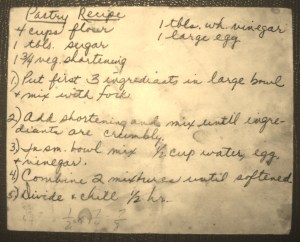 Pastry Recipe
4 cups flour
1 tbls. wh. vinegar
1 tbls. sugar
1 large egg
1 3/4 veg. shortening
1) Put first 3 ingrediants in large bowl
& mix with fork
2) Add shortening and mix until ingre-
diants are crumbly.
3) In sm. bowl mix 1/2 cup water, egg,
& vinegar.
4) Combine 2 mixtures until softened
5) Divide & chill 1/2 hr.